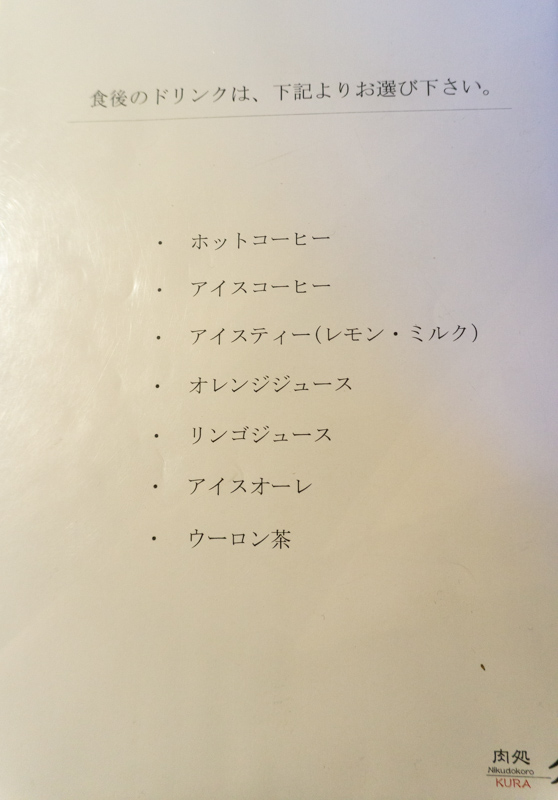 食後のドリンクは、下記よりお選び下さい。
・ ホットコーヒー
・ アイスコーヒー
・ アイスティー(レモン・ミルク)
・ オレンジジュース
・ リンゴジュース
・ アイスオーレ
・ ウーロン茶
肉処
Nikudokoro
KURA